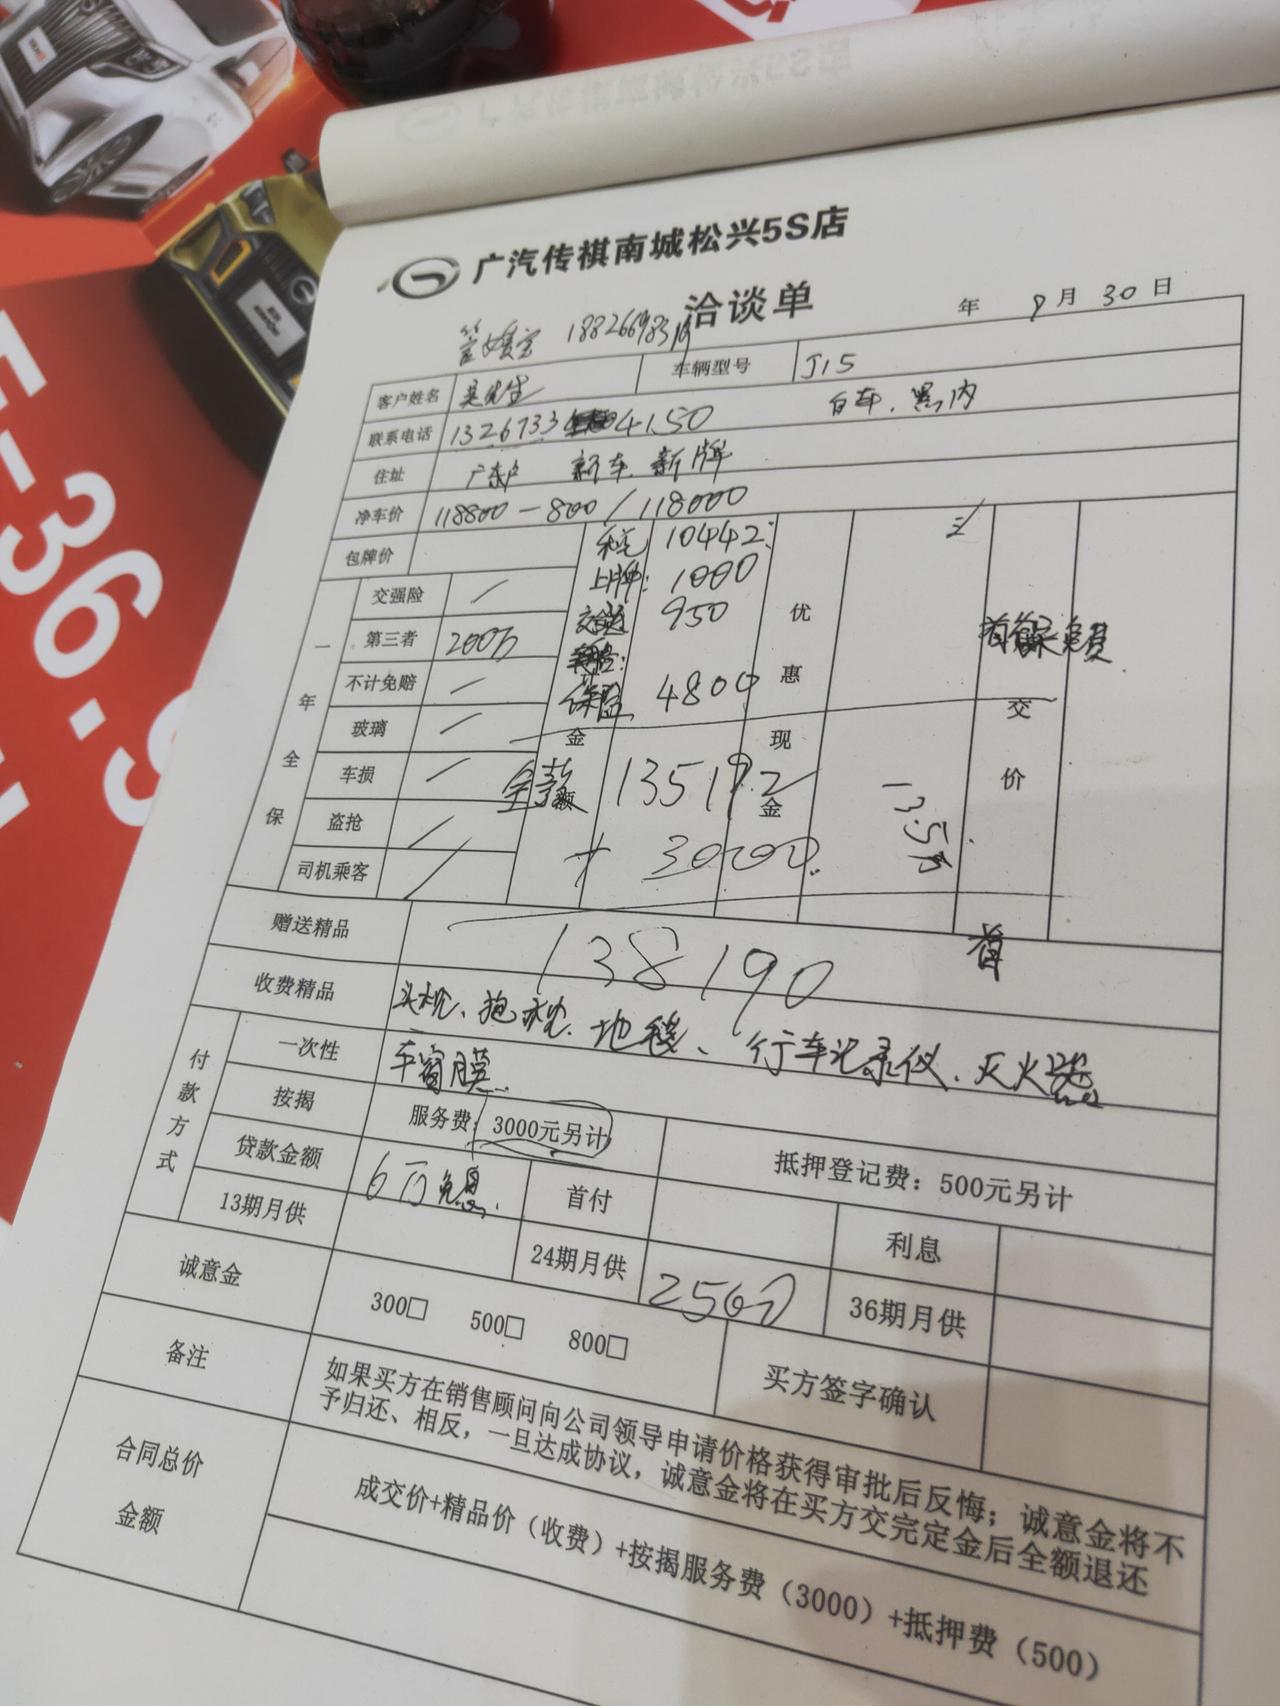 广汽传祺南城松兴5S店
洽谈单
年 9月 30日
客户姓名 吴先生 车辆型号 J15
联系电话 1326733 4150 白车、黑内
住址 广东户 新车、新牌
净车价 118800-800/118000
包牌价
税 10442
上牌: 1000
950
保险 4800
一年全保
交强险 /
第三者 200万
不计免赔 /
玻璃 /
车损 /
盗抢 /
司机乘客 /
金额
优惠现金
13.5万
首保免费
交价
全款 135192
+ 3000
赠送精品 138190
首
收费精品 头枕、抱枕、地毯、行车记录仪、灭火器
车窗膜
付款方式
一次性
按揭 服务费: 3000元另计 抵押登记费: 500元另计
贷款金额 6万免息 首付 利息
13期月供 24期月供 2500 36期月供
诚意金 300□ 500□ 800□ 买方签字确认
备注 如果买方在销售顾问向公司领导申请价格获得审批后反悔；诚意金将不
予归还、相反，一旦达成协议，诚意金将在买方交完定金后全额退还
合同总价金额 成交价+精品价（收费）+按揭服务费（3000）+抵押费（500）